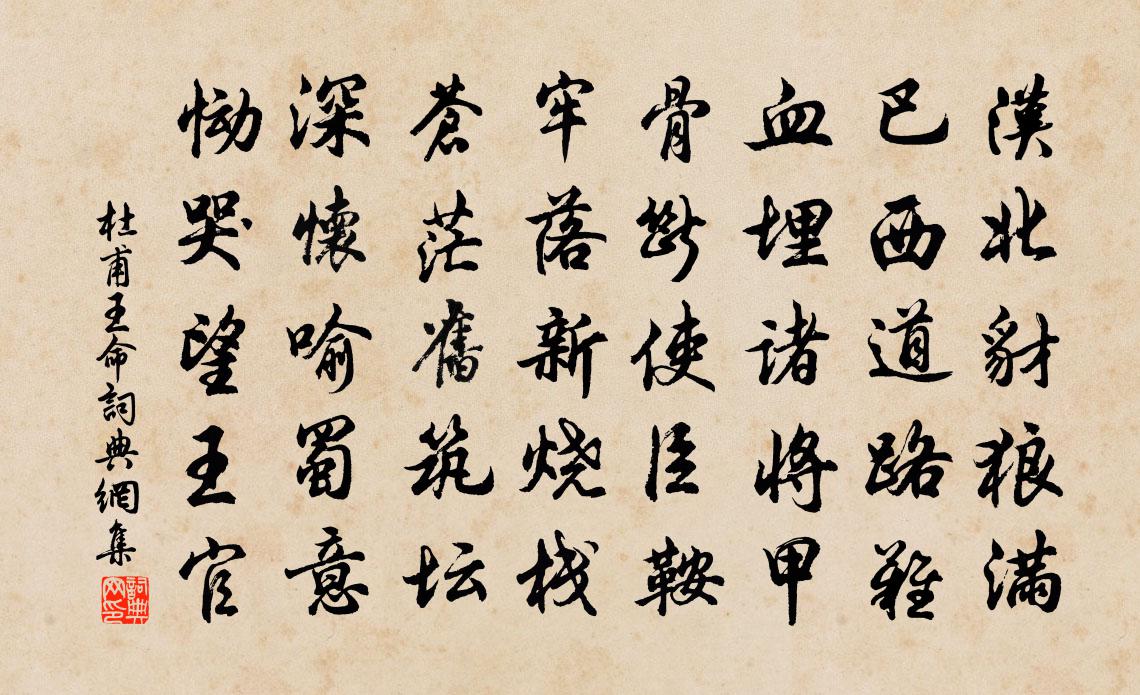 漢北豺狼滿
巴西道路難
血埋诸將甲
骨斷使臣鞍
牢落新烧棧
蒼茫舊筑坛
深懷喻蜀意
恸哭望王官
杜甫王命詞典網集
詞典網印